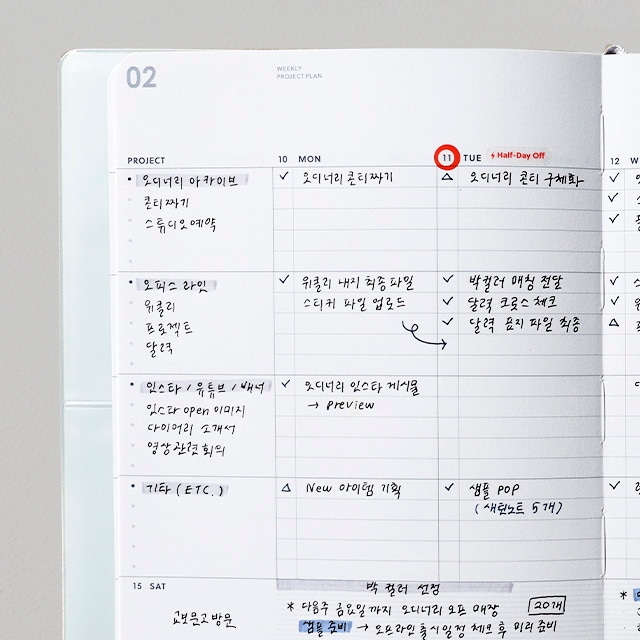 02
WEEKLY
PROJECT PLAN
PROJECT
10 MON
11 TUE Half-Day Off
12 W
오디너리 아카이브
콘티짜기
스튜디오예약
✓ 오디너리콘티짜기
△ 오디너리 콘티 구체화
오피스 라인
위클리
프로젝트
달력
✓ 위클리 내지 최종파일
스티커 파일 업로드
✓ 박컬러 매칭 전달
✓ 달력 크로스체크
✓ 달력 표지 파일 최종
인스타 / 유튜브 / 배너
인스타 open 이미지
다이어리 소개서
영상관련회의
✓ 오디너리 인스타 게시물
→ preview
기타 (ETC.)
△ New 아이템 기획
✓ 샘플 POP
(새틴노트 5개)
15 SAT
교보문고방문
박 컬러 선정
* 다음주 금요일까지 오디너리 오프 매장 20개
샘플 준비 → 오프라인 출시일정 체크 후 미리 준비